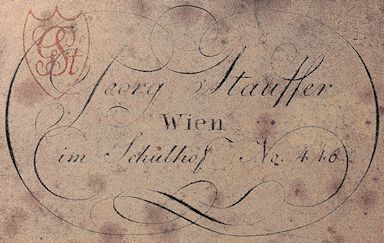 GSt
Georg Stauffer
Wien
im Schulhof No. 446